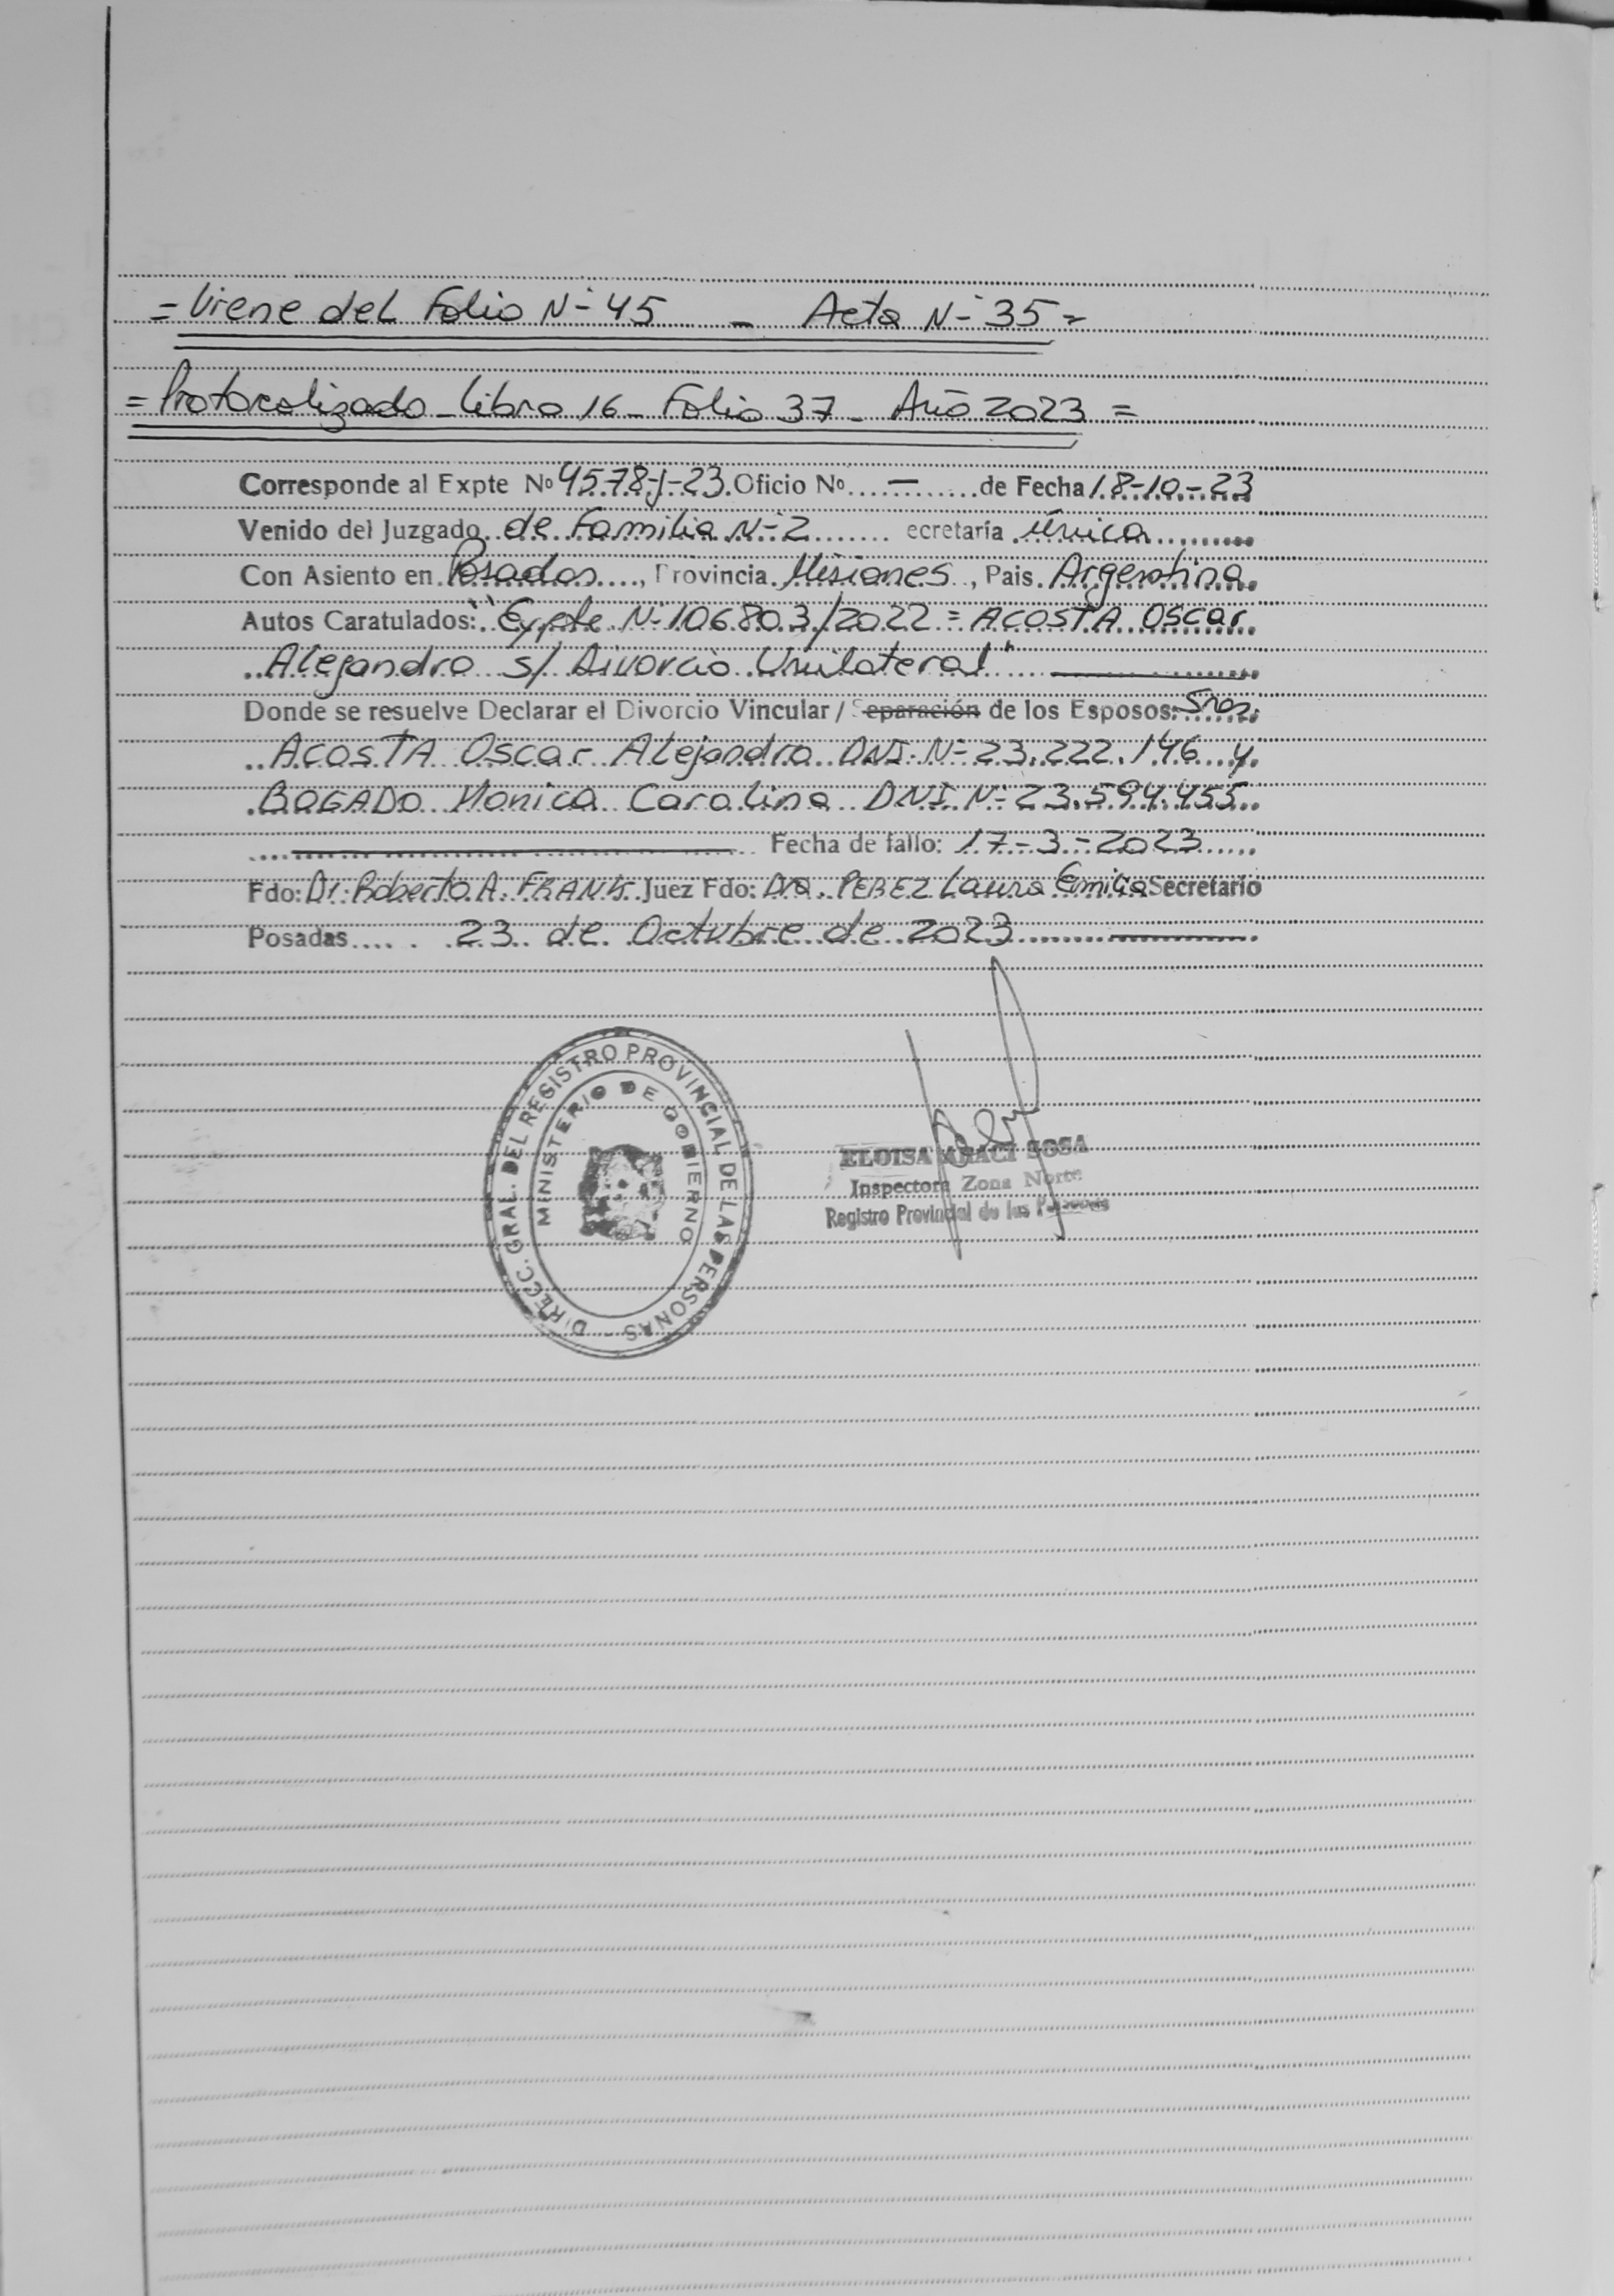 = Viene del Folio N- 45 - Acta N- 35 =
= Protocolizado - Libro 16 - Folio 37 - Año 2023 =
Corresponde al Expte Nº 4578-J-23 Oficio Nº — de Fecha 18-10-23
Venido del Juzgado de Familia N- 2 ecretaría Única
Con Asiento en Posadas, Provincia Misiones, Pais Argentina
Autos Caratulados: "Expte N- 106803/2022 = ACOSTA Oscar
Alejandro s/ Divorcio Unilateral"
Donde se resuelve Declarar el Divorcio Vincular / Separación de los Esposos: Sres.
ACOSTA Oscar Alejandro DNI. N- 23.222.146 y
BOGADO Monica Carolina DNI N- 23.594.455
Fecha de fallo: 17-3-2023
Fdo: Dr. Roberto A. FRANK Juez Fdo: Dra. PEREZ Laura Emilia Secretario
Posadas 23 de Octubre de 2023
DIRECC. GRAL. DEL REGISTRO PROVINCIAL DE LAS PERSONAS -
MINISTERIO DE GOBIERNO
ELOISA ARACI SOSA
Inspectora Zona Norte
Registro Provincial de las Personas